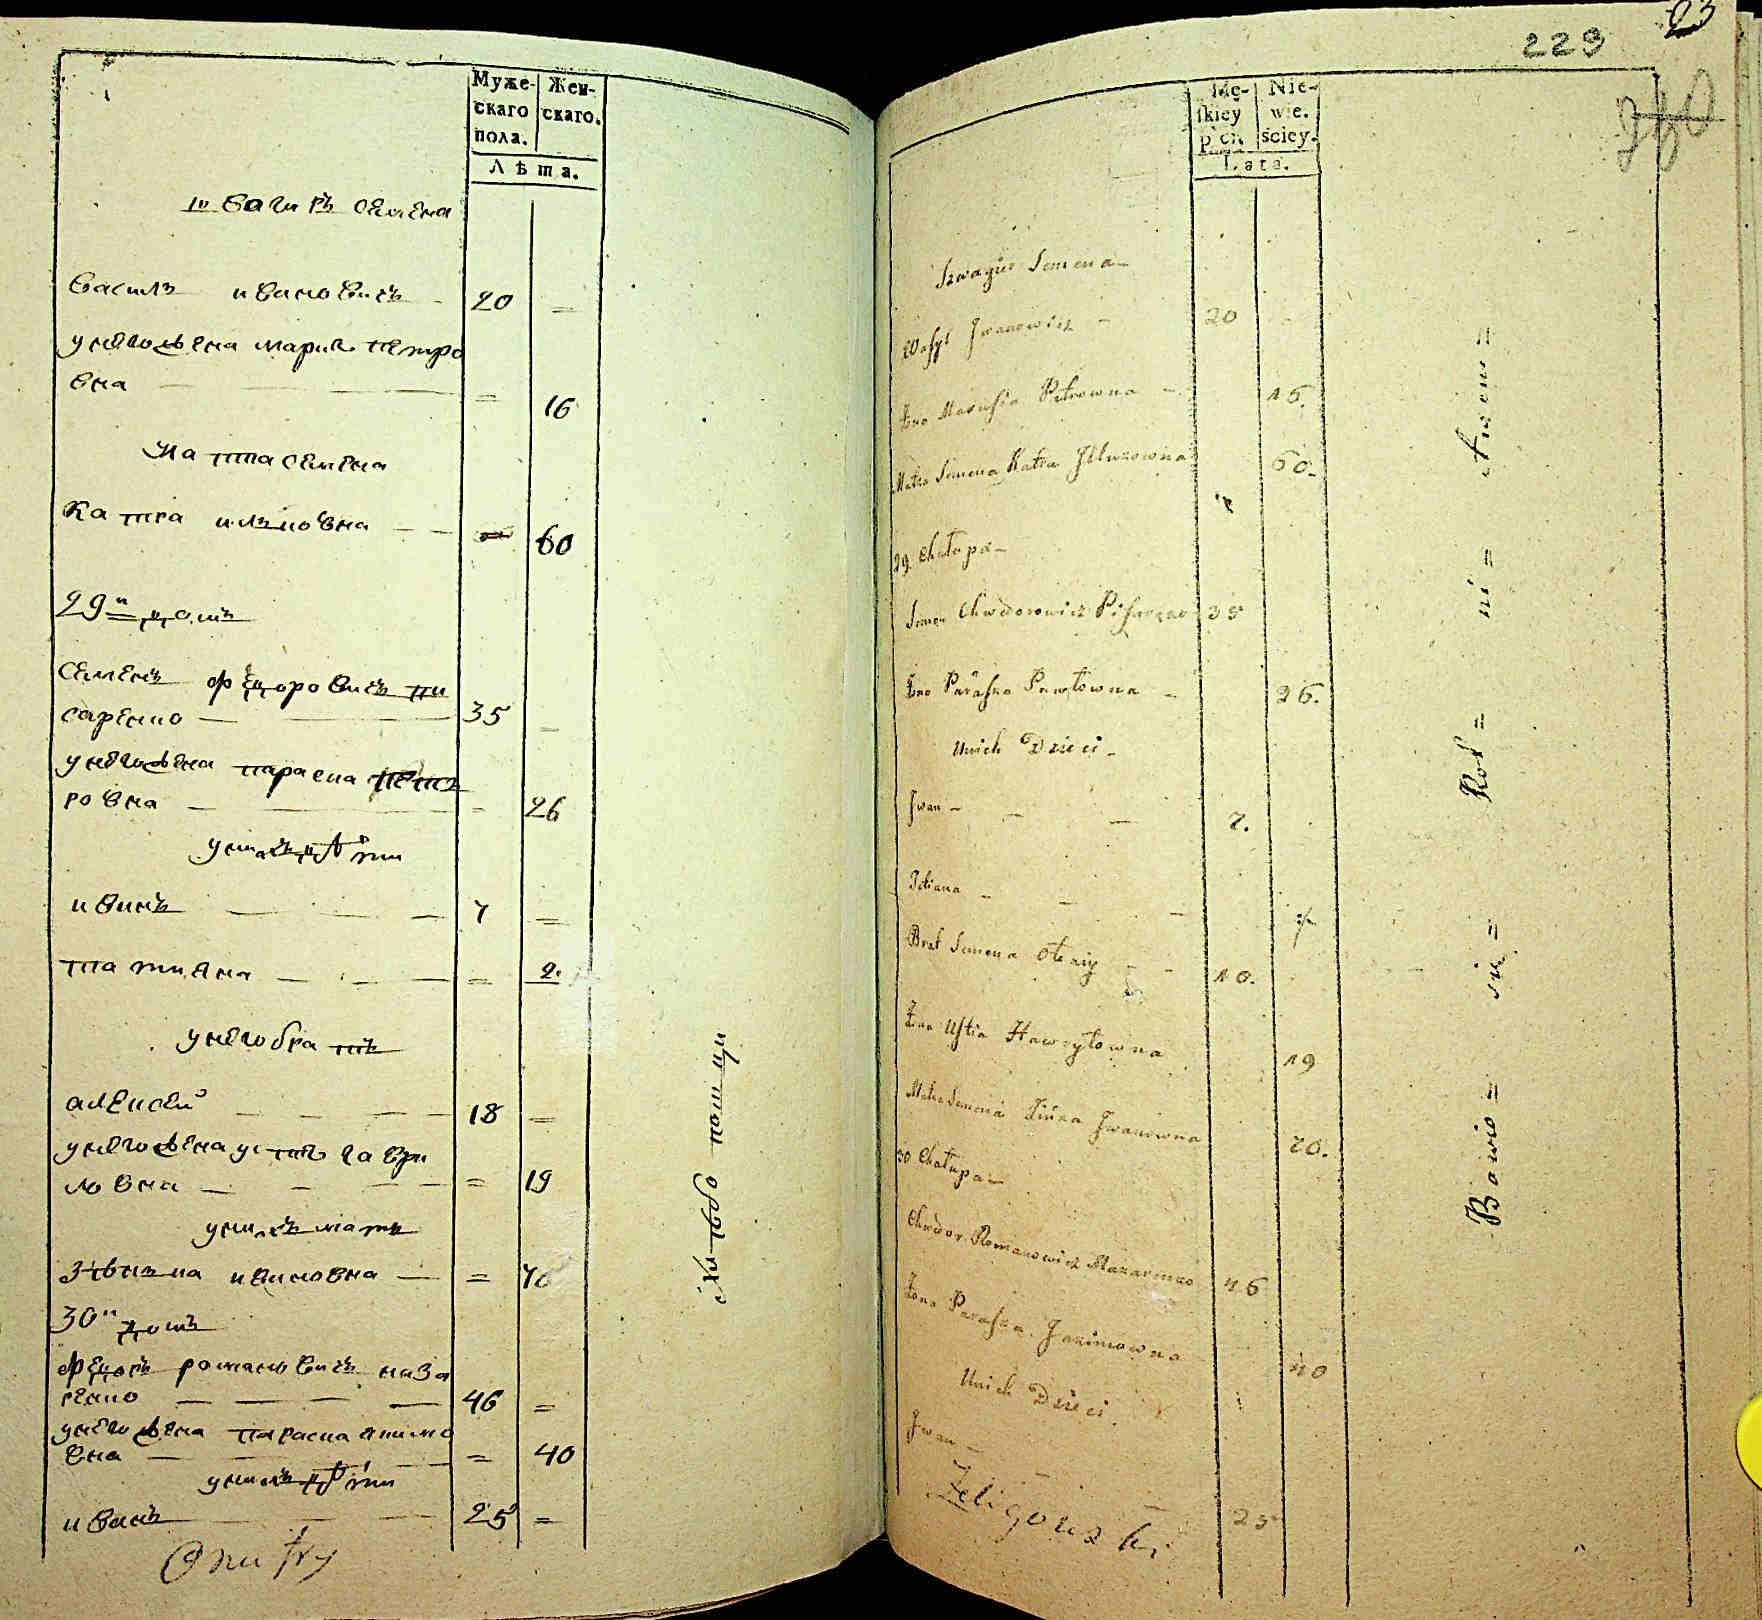 Муже-
скаго
пола.
Жен-
скаго.
Лѣта.
швагиръ семена
василь ивановичъ - 20 =
унегожена мария петро
вна — = 16
мати семена
катра 60
29й домъ
семенъ федоровичъ пи
саренко — 35 =
унегожена параска пет
ровна — = 26
унихъ дѣти
иванъ — 7 =
татияна — = 2.
унего братъ
алексей — 18 =
унегожена устия гаври
ловна — = 19
унихъ мать
зѣнька ивановна — = 70
30й домъ
федоръ романовичъ наза
ренко — 46 =
унегожена параска якимо
вна — = 40
унихъ дѣти
иванъ — 25 =
Onufry
223
23
Mę-
skiey
płci.
Nie-
wie-
ściey.
Lata.
Szwagier Semena -
Wasyl Jwanowicz - 20
Żona Marysia Petrowna - 16.
Matka Semena Katra 60.
29 Chałupa -
Semen Chwedorowicz Pisarenko 35
Żona Paraska Pawłowna - 26.
Unich Dzieci -
Jwan - 7.
Tatiana -
Brat Semena Olexiy - - 18.
Żona Ustia Hawryłowna 19
Matka Semena Zińka Jwanowna 70.
30 Chałupa -
Chwedor Romanowicz Nazarenko 46
Żona Paraska Jakimowna 40
Unich Dzieci
Jwan - 25
Zeligowski